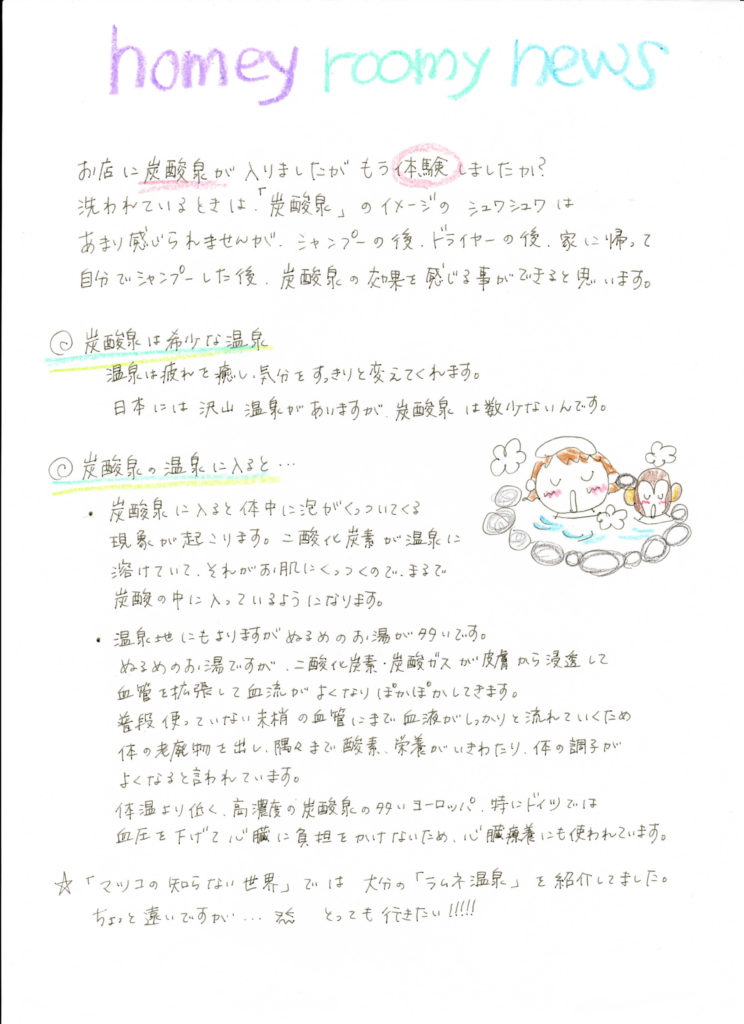 homey roomy news
お店に炭酸泉が入りましたが もう体験しましたか?
洗われているときは、「炭酸泉」のイメージの シュワシュワは
あまり感じられませんが、シャンプーの後、ドライヤーの後、家に帰って
自分でシャンプーした後、炭酸泉の効果を感じる事ができると思います。
◎ 炭酸泉は希少な温泉
温泉は疲れを癒し、気分をすっきりと変えてくれます。
日本には 沢山 温泉がありますが、炭酸泉は数少ないんです。
◎ 炭酸泉の温泉に入ると…
・ 炭酸泉に入ると体中に泡がくっついてくる
現象が起こります。二酸化炭素が温泉に
溶けていて、それがお肌にくっつくので、まるで
炭酸の中に入っているようになります。
・ 温泉地にもよりますがぬるめのお湯が多いです。
ぬるめのお湯ですが、二酸化炭素・炭酸ガスが皮膚から浸透して
血管を拡張して血流がよくなり ぽかぽかしてきます。
普段使っていない末梢の血管にまで血液がしっかりと流れていくため
体の老廃物を出し、隅々まで酸素、栄養がいきわたり、体の調子が
よくなると言われています。
体温より低く、高濃度の炭酸泉の多いヨーロッパ、特にドイツでは
血圧を下げて心臓に負担をかけないため、心臓療養にも使われています。
☆ 「マツコの知らない世界」では 大分の「ラムネ温泉」を紹介してました。
ちょっと遠いですが… とっても行きたい!!!!!